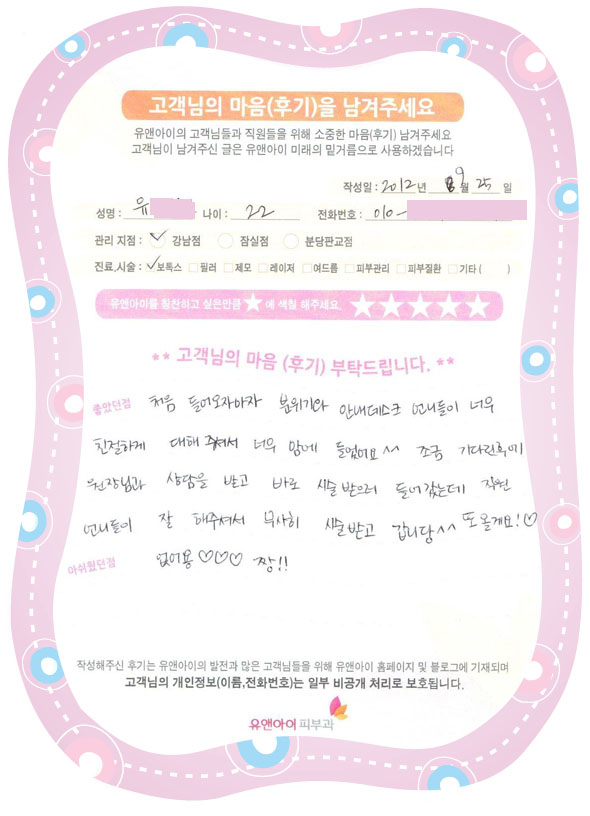 고객님의 마음(후기)을 남겨주세요
유앤아이의 고객님들과 직원들을 위해 소중한 마음(후기) 남겨주세요
고객님이 남겨주신 글은 유앤아이 미래의 밑거름으로 사용하겠습니다
작성일 : 2012년 9월 25일
성명 : 유 나이 : 22 전화번호 : 010-
관리 지점 : 강남점 잠실점 분당판교점
진료,시술 : 보톡스 필러 제모 레이저 여드름 피부관리 피부질환 기타 ( )
유앤아이를 칭찬하고 싶은만큼 ★ 에 색칠 해주세요 ★★★★★
** 고객님의 마음 (후기) 부탁드립니다. **
좋았던점 처음 들어오자마자 분위기와 안내데스크 언니들이 너무
친절하게 대해 주셔서 너무 맘에 들었어요^^ 조금 기다린후에
원장님과 상담을 받고 바로 시술 받으러 들어갔는데 직원
언니들이 잘 해주셔서 무사히 시술받고 갑니당^^ 또올게요!♡
아쉬웠던점 없어용♡♡♡ 짱!!
작성해주신 후기는 유앤아이의 발전과 많은 고객님들을 위해 유앤아이 홈페이지 및 블로그에 기재되며
고객님의 개인정보(이름,전화번호)는 일부 비공개 처리로 보호됩니다.
유앤아이 피부과